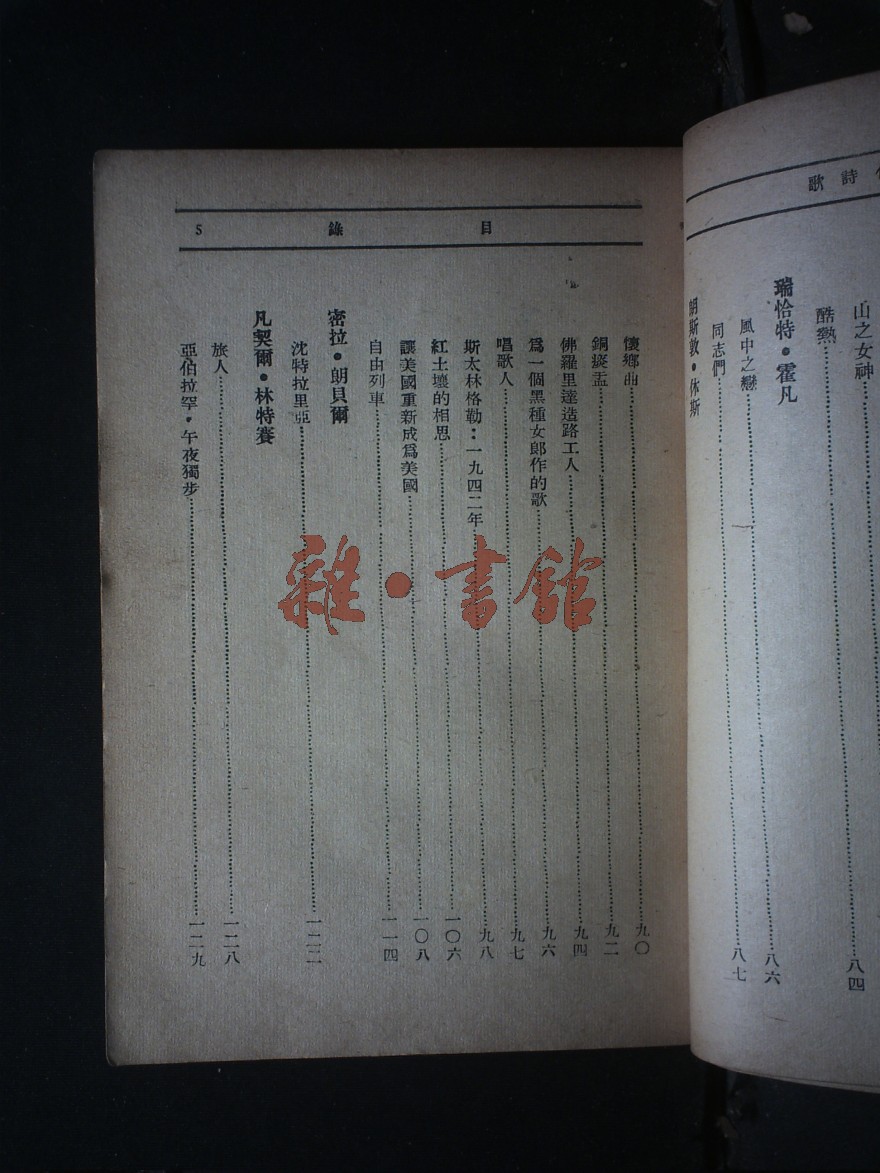 詩歌
山之女神……八四
酷熱
瑞恰特•霍凡
風中之戀……八六
同志們……八七
朗斯敦•休斯
目錄 5
懷鄉曲……九〇
銅痰盂……九二
佛羅里達造路工人……九四
爲一個黑種女郎作的歌……九六
唱歌人……九七
斯太林格勒：一九四二年……九八
紅土壤的相思……一〇六
讓美國重新成爲美國……一〇八
自由列車……一一四
密拉•朗貝爾
沈特拉里亞……一二二
凡契爾•林特賽
旅人……一二八
亞伯拉罕•午夜獨步……一二九
雜•書館